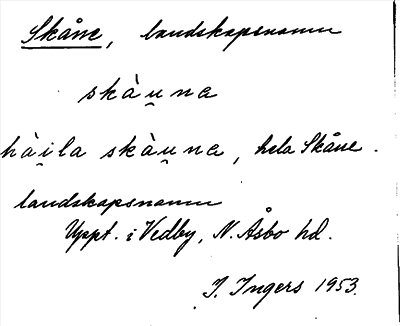 Skåne, landskapsnamn
skàu̯na
hài̯la skàu̯na, hela Skåne.
landskapsnamn
Uppt. i Vedby, N. Åsbo hd.
I. Ingers 1953.